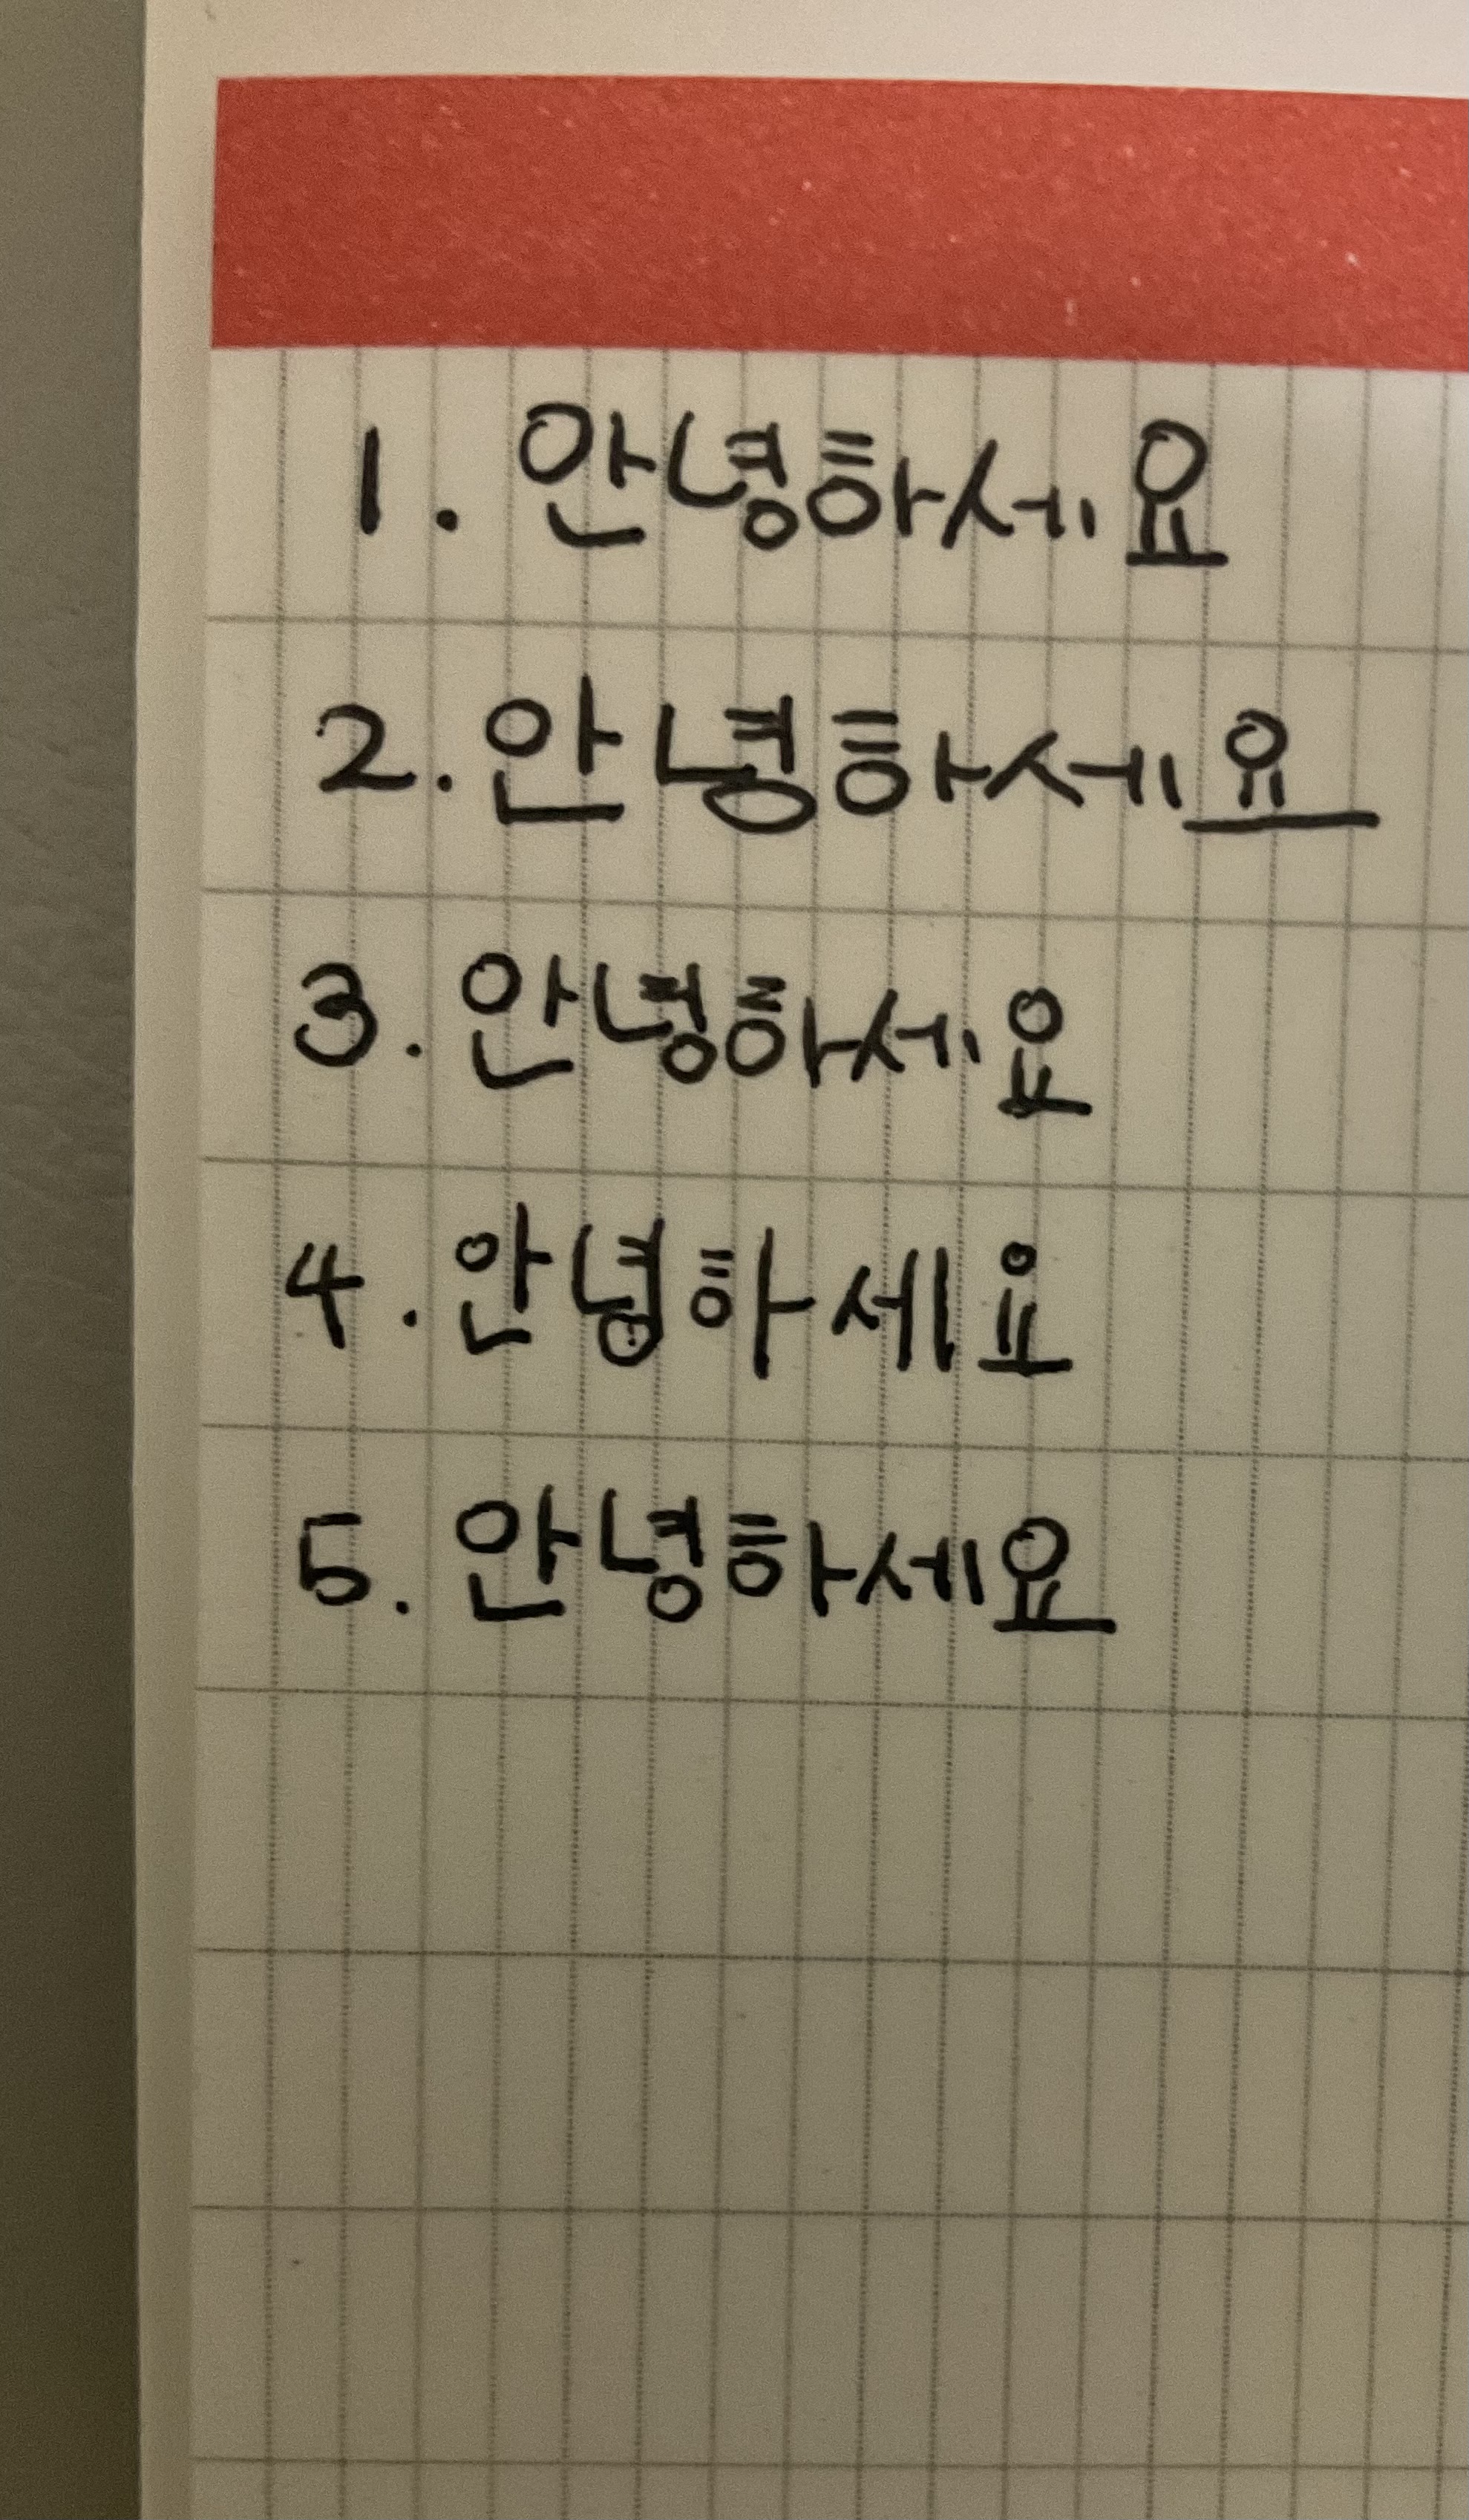 1. 안녕하세요
2. 안녕하세요
3. 안녕하세요
4. 안녕하세요
5. 안녕하세요